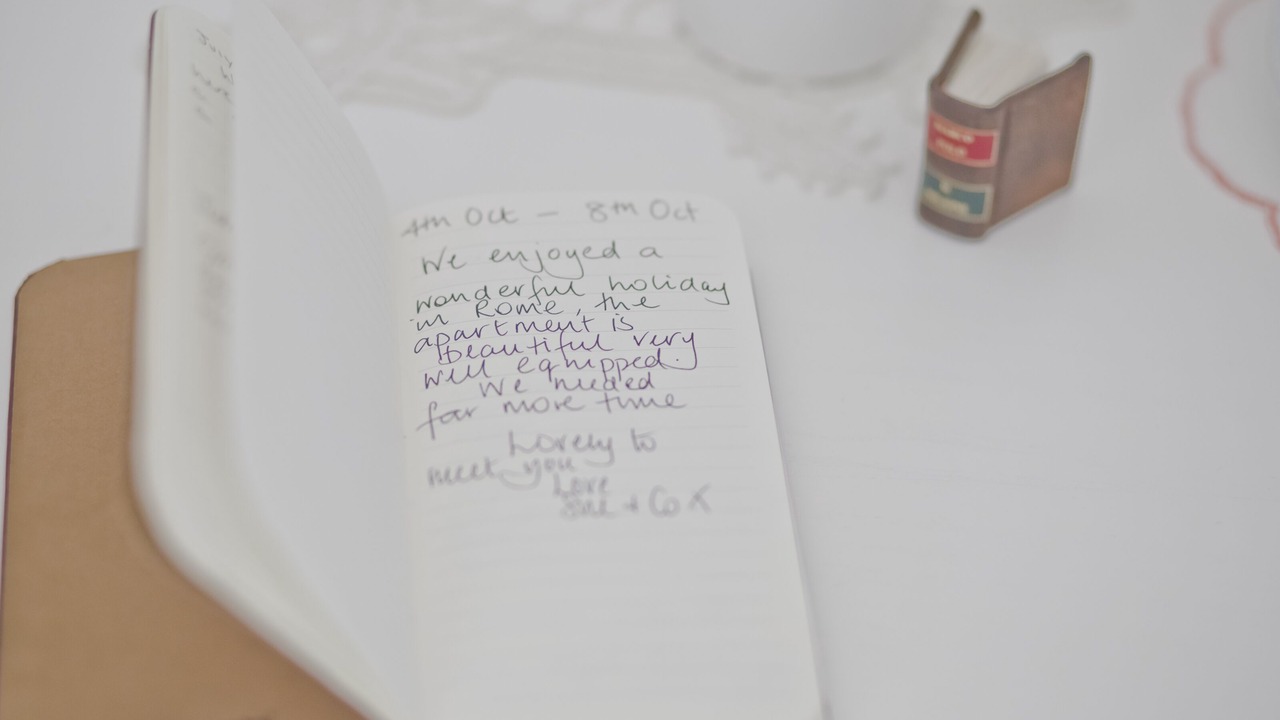 4th Oct — 8th Oct
We enjoyed a
wonderful holiday
in Rome, the
apartment is
beautiful very
well equipped.
We needed
far more time
Lovely to
meet you
Love
Sue + Co X